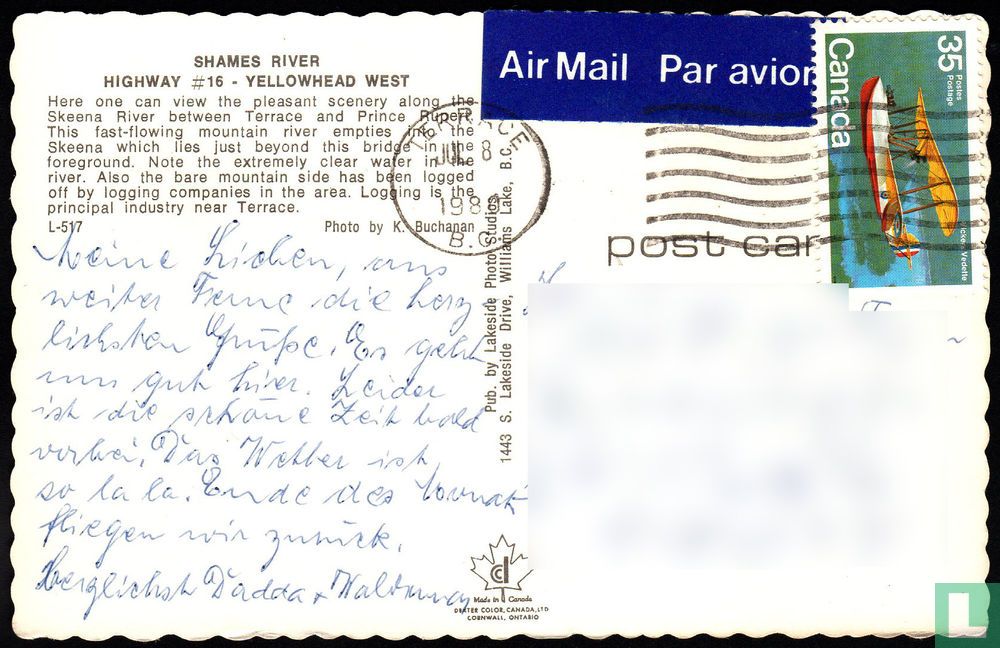 SHAMES RIVER
HIGHWAY #16 - YELLOWHEAD WEST
Here one can view the pleasant scenery along the
Skeena River between Terrace and Prince Rupert.
This fast-flowing mountain river empties into the
Skeena which lies just beyond this bridge in the
foreground. Note the extremely clear water in the
river. Also the bare mountain side has been logged
off by logging companies in the area. Logging is the
principal industry near Terrace.
L-517 Photo by K. Buchanan
Meine Lieben, aus
weiter Ferne die herz
lichsten Grüße. Es geht
uns gut hier. Leider
ist die schöne Zeit bald
vorbei. Das Wetter ist
so la la. Ende des Monats
fliegen wir zurück.
Herzlichst Dadda + Waldemar
Pub. by Lakeside Photo Studios,
1443 S. Lakeside Drive, Williams Lake, B.C.
Air Mail Par avion
TERRACE
JUL 8
198
B.C.
post car
Canada
35
Postes
Postage
Vickers Vedette
Made in Canada
DEXTER COLOR, CANADA, LTD
CORNWALL, ONTARIO
L